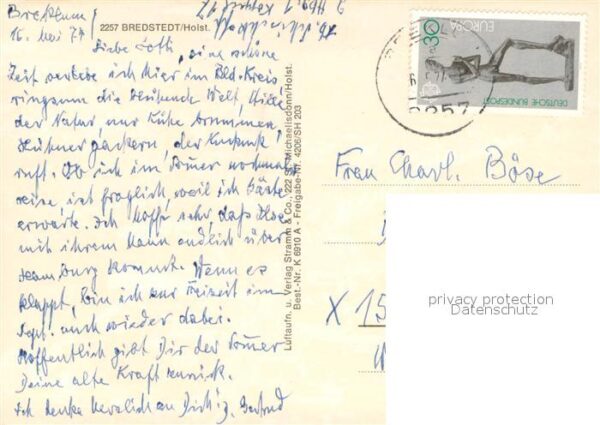 Breklum
16. Mai 77
2257 BREDSTEDT/Holst.
Liebe Loth, eine schöne
Zeit verlebe ich hier im Bld.-Kreis
ringsum die blühende Welt, Stille
der Natur, nur Kühe brummen,
Hühner gackern, der Kuckuck
ruft. Ob ich im Sommer nochmal
reise, ist fraglich, weil ich Gäste
erwarte. Ich hoffe sehr, daß Ilse
mit ihrem Mann endlich über
Hamburg kommt. Wenn es
klappt, bin ich zur Freizeit im
Sept. auch wieder dabei.
Hoffentlich gibt Dir der Sommer
Deine alte Kraft zurück.
Ich denke herzlich an Dich! Gertrud
Luftaufn. u. Verlag Stramm & Co., 222 St. Michaelisdonn/Holst.
Best.-Nr. K 6910 A - Freigabe-Nr. 4206/SH 203
30
EUROPA
DEUTSCHE BUNDESPOST
2257
Frau Charl. Böse
X 15
privacy protection
Datenschutz